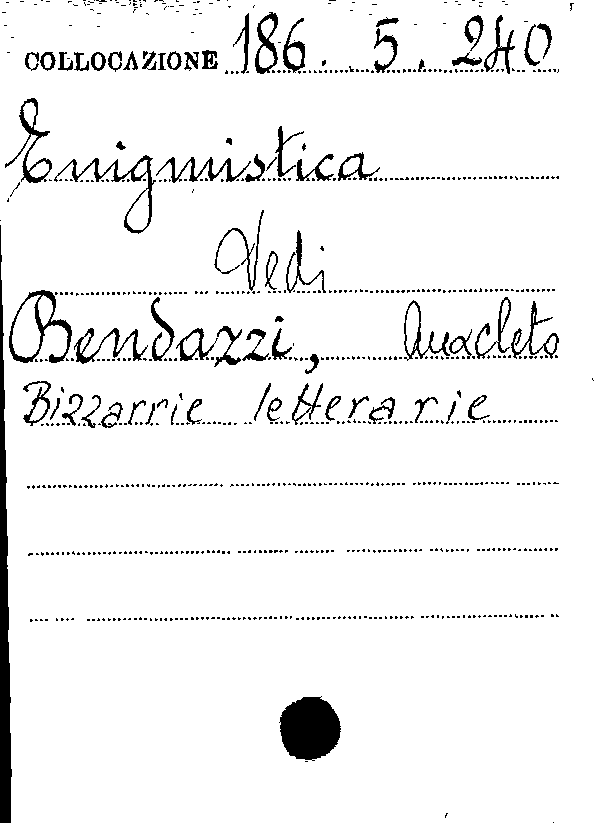 COLLOCAZIONE 186. 5. 240
Enigmistica
Vedi
Bendazzi, Anacleto
Bizzarrie letterarie